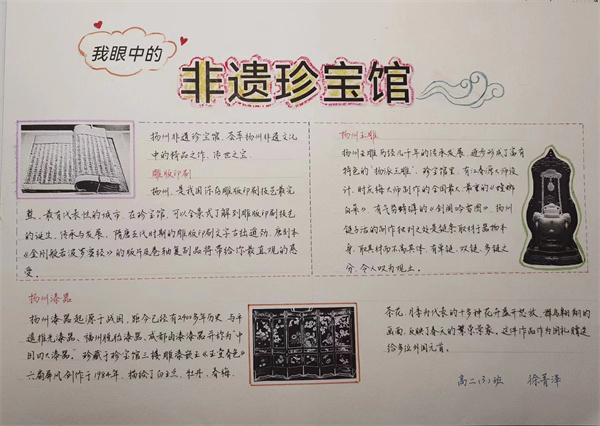 我眼中的
非遗珍宝馆
扬州非遗珍宝馆,荟萃扬州非遗文化
中的精品之作、传世之宝。
雕版印刷
扬州,是我国保存雕版印刷技艺最完
整、最有代表性的城市,在珍宝馆,可以全景式了解到雕版印刷技艺
的诞生、传承与发展,隋唐五代时期的雕版印刷文字古拙遒劲,唐刻本
《金刚般若波罗蜜经》的版片及卷轴复制品将带给你最直观的感
受。
扬州玉雕
扬州玉雕历经几千年的传承发展,逐步形成了富有
特色的“扬派玉雕”。珍宝馆里,有江春源大师设
计、时庆梅大师制作的全国最大最重的《螳螂
白菜》,有气势磅礴的《剑阁吟当图》。扬州
链子活的制作独到之处是链条取材于器物本
身,取其材而不离其体,有单链、双链、多链之
分,令人叹为观止。
扬州漆器
扬州漆器起源于战国,距今已经有2400多年历史,与平
遥推光漆器、福州脱胎漆器、成都卤漆漆器并称为“中
国四大漆器”。珍藏于珍宝馆三楼雕漆嵌玉《玉堂春色》
六扇屏风创作于1984年,描绘了白玉兰、牡丹、春梅、
茶花、月季为代表的十多种花开盛开怒放、群鸟翱翔的
画面,反映了春天的繁荣景象。这件作品作为国礼赠送
给多位外国元首。
高二(3)班 徐菁泽